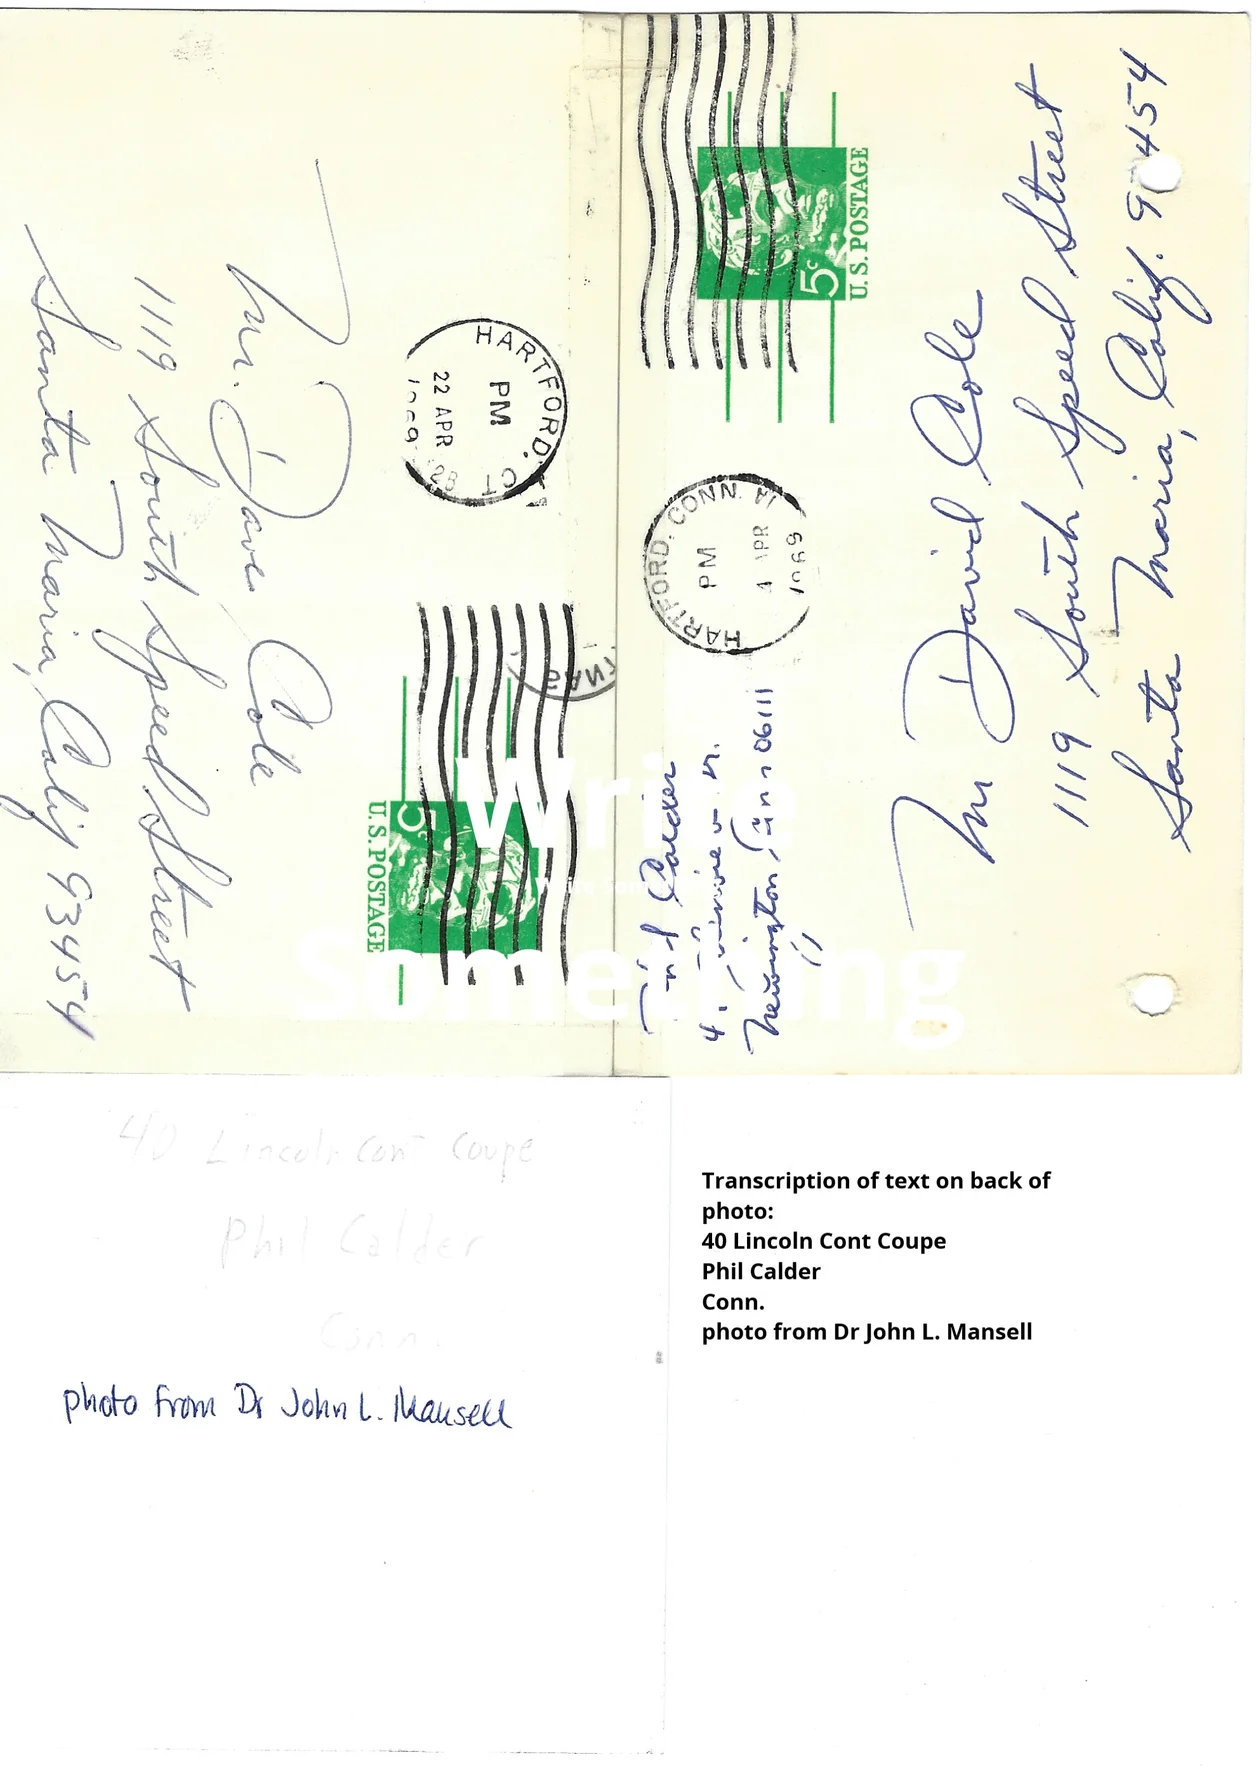 Mr. Dave Cole
1119 South Speed Street
Santa Maria, Calif 934454
HARTFORD, CT
PM
22 APR
1969
U.S. POSTAGE
5c
U.S. POSTAGE
HARTFORD, CONN.
PM
4 APR
1969
Calder
Newington, Conn 06111
Mr David Cole
1119 South Speed Street
Santa Maria, Calif. 9 454
Write
Something
40 Lincoln Cont Coupe
Phil Calder
Conn.
photo from Dr John L. Mansell
Transcription of text on back of
photo:
40 Lincoln Cont Coupe
Phil Calder
Conn.
photo from Dr John L. Mansell